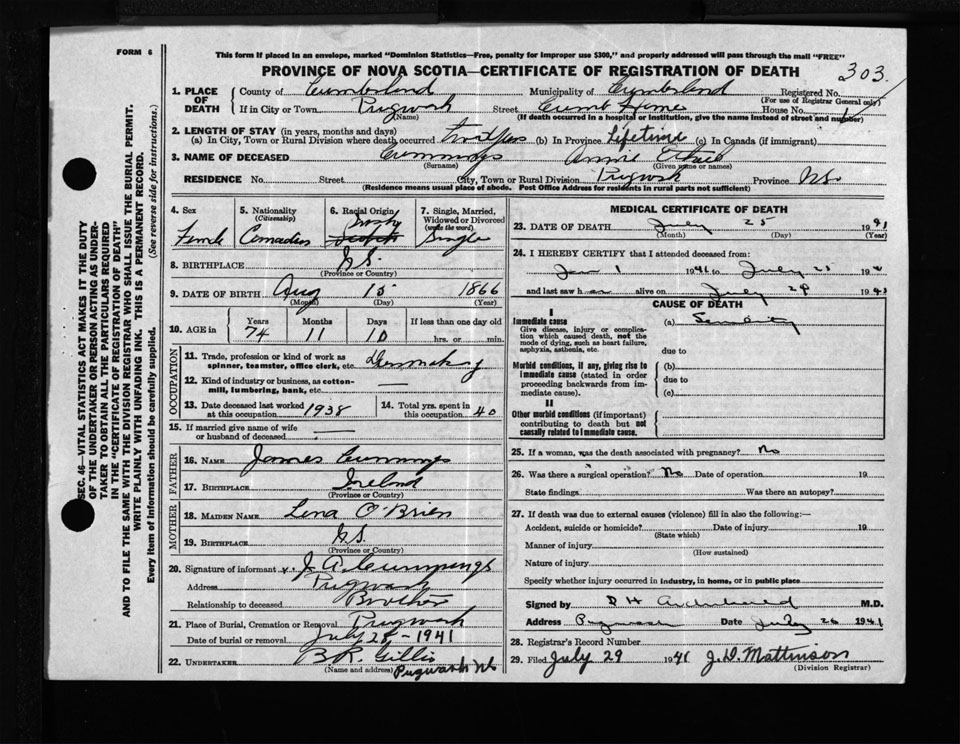 FORM 6
This form if placed in an envelope, marked "Dominion Statistics—Free, penalty for improper use $300," and properly addressed will pass through the mail "FREE"
PROVINCE OF NOVA SCOTIA—CERTIFICATE OF REGISTRATION OF DEATH
303
1. PLACE OF DEATH
County of Cumberland Municipality of Cumberland Registered No.
(For use of Registrar General only)
If in City or Town Pugwash Street Cumb Home House No.
(Name) (If death occurred in a hospital or institution, give the name instead of street and number)
2. LENGTH OF STAY (in years, months and days)
(a) In City, Town or Rural Division where death occurred (b) In Province Lifetime (c) In Canada (if immigrant)
3. NAME OF DECEASED Cummings Annie Ethel
(Surname) (Given name or names)
RESIDENCE No. Street City, Town or Rural Division Pugwash Province N.S.
(Residence means usual place of abode. Post Office Address for residents in rural parts not sufficient)
4. Sex Female
5. Nationality (Citizenship) Canadian
6. Racial Origin Irish Scotch
7. Single, Married, Widowed or Divorced (write the word) Single
8. BIRTHPLACE N.S.
(Province or Country)
9. DATE OF BIRTH Aug 15 1866
(Month) (Day) (Year)
10. AGE in Years Months Days If less than one day old
74 11 10 hrs. or min.
OCCUPATION
11. Trade, profession or kind of work as spinner, teamster, office clerk, etc.
12. Kind of industry or business, as cotton-mill, lumbering, bank, etc. —
13. Date deceased last worked at this occupation 1938
14. Total yrs. spent in this occupation 40
15. If married give name of wife or husband of deceased —
FATHER
16. NAME James Cummings
17. BIRTHPLACE Ireland
(Province or Country)
MOTHER
18. MAIDEN NAME Lena O'Brien
19. BIRTHPLACE N.S.
(Province or Country)
20. Signature of informant J. A. Cummings
Address Pugwash
Relationship to deceased Brother
21. Place of Burial, Cremation or Removal Pugwash
Date of burial or removal July 28 - 1941
22. UNDERTAKER B. R. Gillis
(Name and address) Pugwash NS
MEDICAL CERTIFICATE OF DEATH
23. DATE OF DEATH July 25 1941
(Month) (Day) (Year)
24. I HEREBY CERTIFY that I attended deceased from:
Jan 1 1941 to July 25 19
and last saw h er alive on July 24 19
CAUSE OF DEATH
I
Immediate cause
Give disease, injury or complication which caused death, not the mode of dying, such as heart failure, asphyxia, asthenia, etc.
(a) Senility
due to
Morbid conditions, if any, giving rise to immediate cause (stated in order proceeding backwards from immediate cause).
(b)
due to
(c)
II
Other morbid conditions (if important) contributing to death but not causally related to immediate cause.
25. If a woman, was the death associated with pregnancy? No
26. Was there a surgical operation? No Date of operation 19
State findings Was there an autopsy?
27. If death was due to external causes (violence) fill in also the following:—
Accident, suicide or homicide? Date of injury 19
(State which)
Manner of injury
(How sustained)
Nature of injury
Specify whether injury occurred in industry, in home, or in public place
Signed by D H Archibald M.D.
Address Pugwash Date July 26 1941
28. Registrar's Record Number
29. Filed July 29 1941 J. D. Mattinson
(Division Registrar)
SEC. 46—VITAL STATISTICS ACT MAKES IT THE DUTY
OF THE UNDERTAKER OR PERSON ACTING AS UNDER-
TAKER TO OBTAIN ALL THE PARTICULARS REQUIRED
IN THE "CERTIFICATE OF REGISTRATION OF DEATH"
AND TO FILE THE SAME WITH THE DIVISION REGISTRAR WHO SHALL ISSUE THE BURIAL PERMIT.
WRITE PLAINLY WITH UNFADING INK. THIS IS A PERMANENT RECORD.
Every item of information should be carefully supplied. (See reverse side for instructions.)